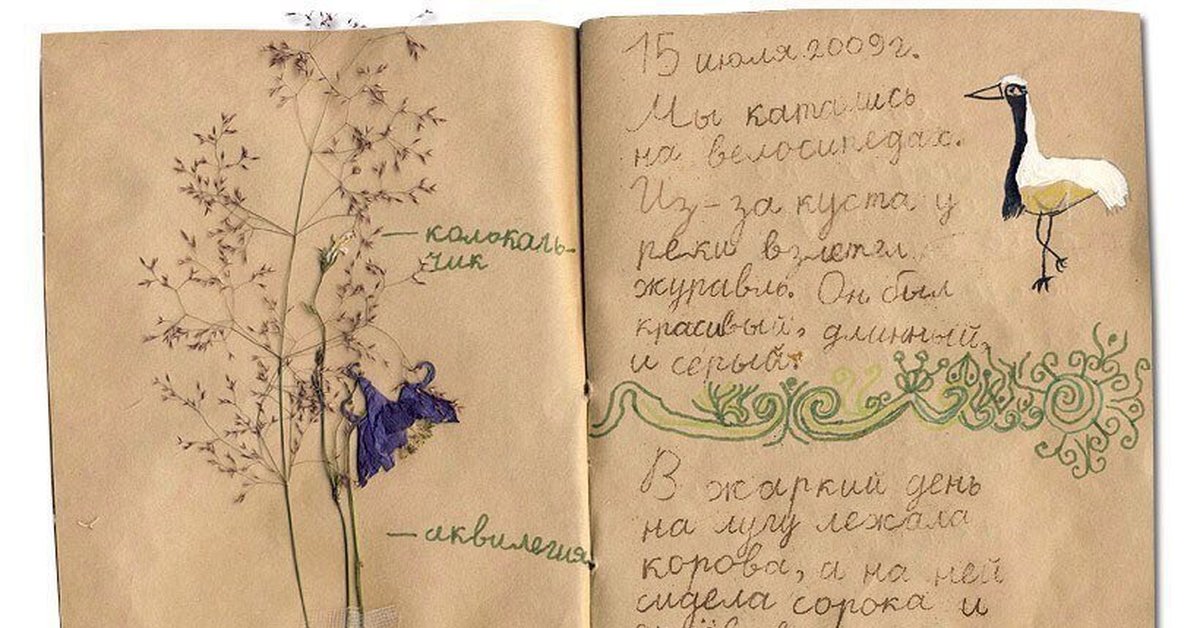 — колокаль-
чик
— аквилегия
15 июля 2009 г.
Мы катались
на велосипедах.
Из-за куста у
реки взлетел
журавль. Он был
красивый, длинный,
и серый.
В жаркий день
на лугу лежала
корова, а на ней
сидела сорока и